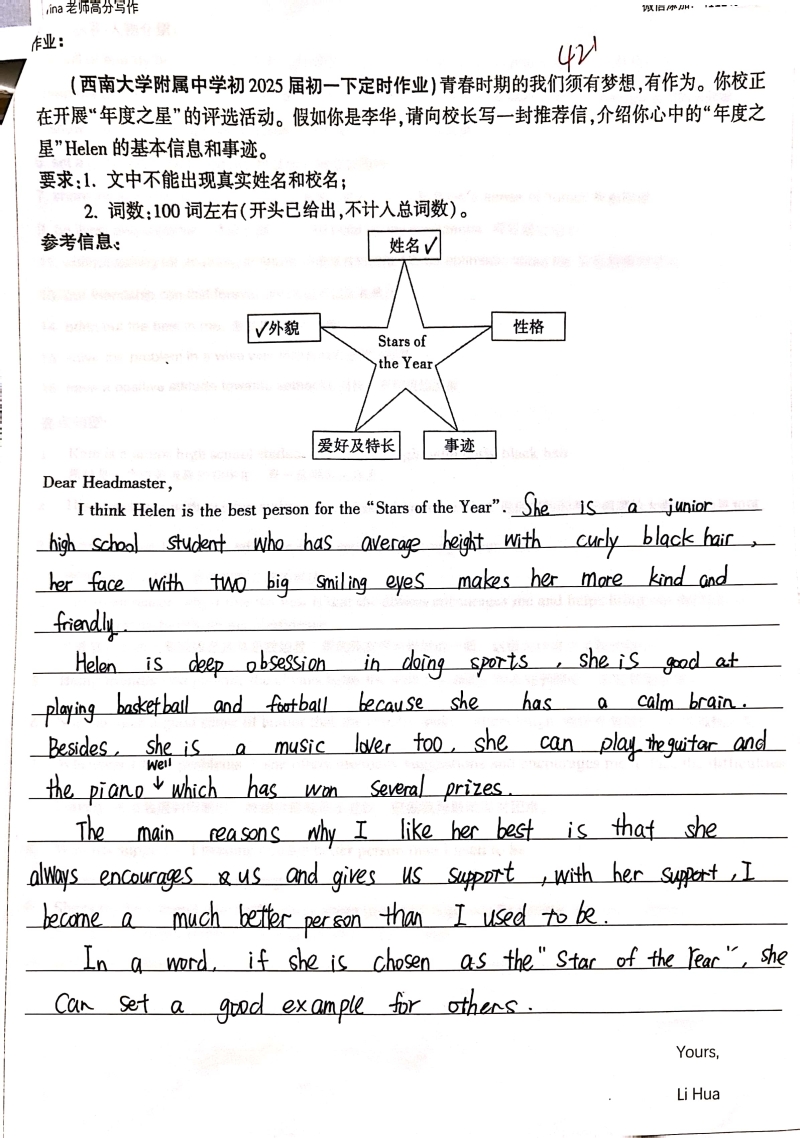 ina 老师高分写作
作业：
42
(西南大学附属中学初 2025 届初一下定时作业)青春时期的我们须有梦想,有作为。你校正
在开展“年度之星”的评选活动。假如你是李华,请向校长写一封推荐信,介绍你心中的“年度之
星”Helen 的基本信息和事迹。
要求:1. 文中不能出现真实姓名和校名;
2. 词数:100 词左右(开头已给出,不计入总词数)。
参考信息:
姓名✓
✓外貌
性格
Stars of
the Year
爱好及特长
事迹
Dear Headmaster,
I think Helen is the best person for the “Stars of the Year”. She is a junior
high school student who has average height with curly black hair ,
her face with two big smiling eyes makes her more kind and
friendly.
Helen is deep obsession in doing sports , she is good at
playing basketball and football because she has a calm brain.
Besides, she is a music lover too, she can play the guitar and
the piano well which has won several prizes.
The main reasons why I like her best is that she
always encourages us and gives us support , with her support , I
become a much better person than I used to be.
In a word, if she is chosen as the "Star of the Year", she
can set a good example for others.
Yours,
Li Hua